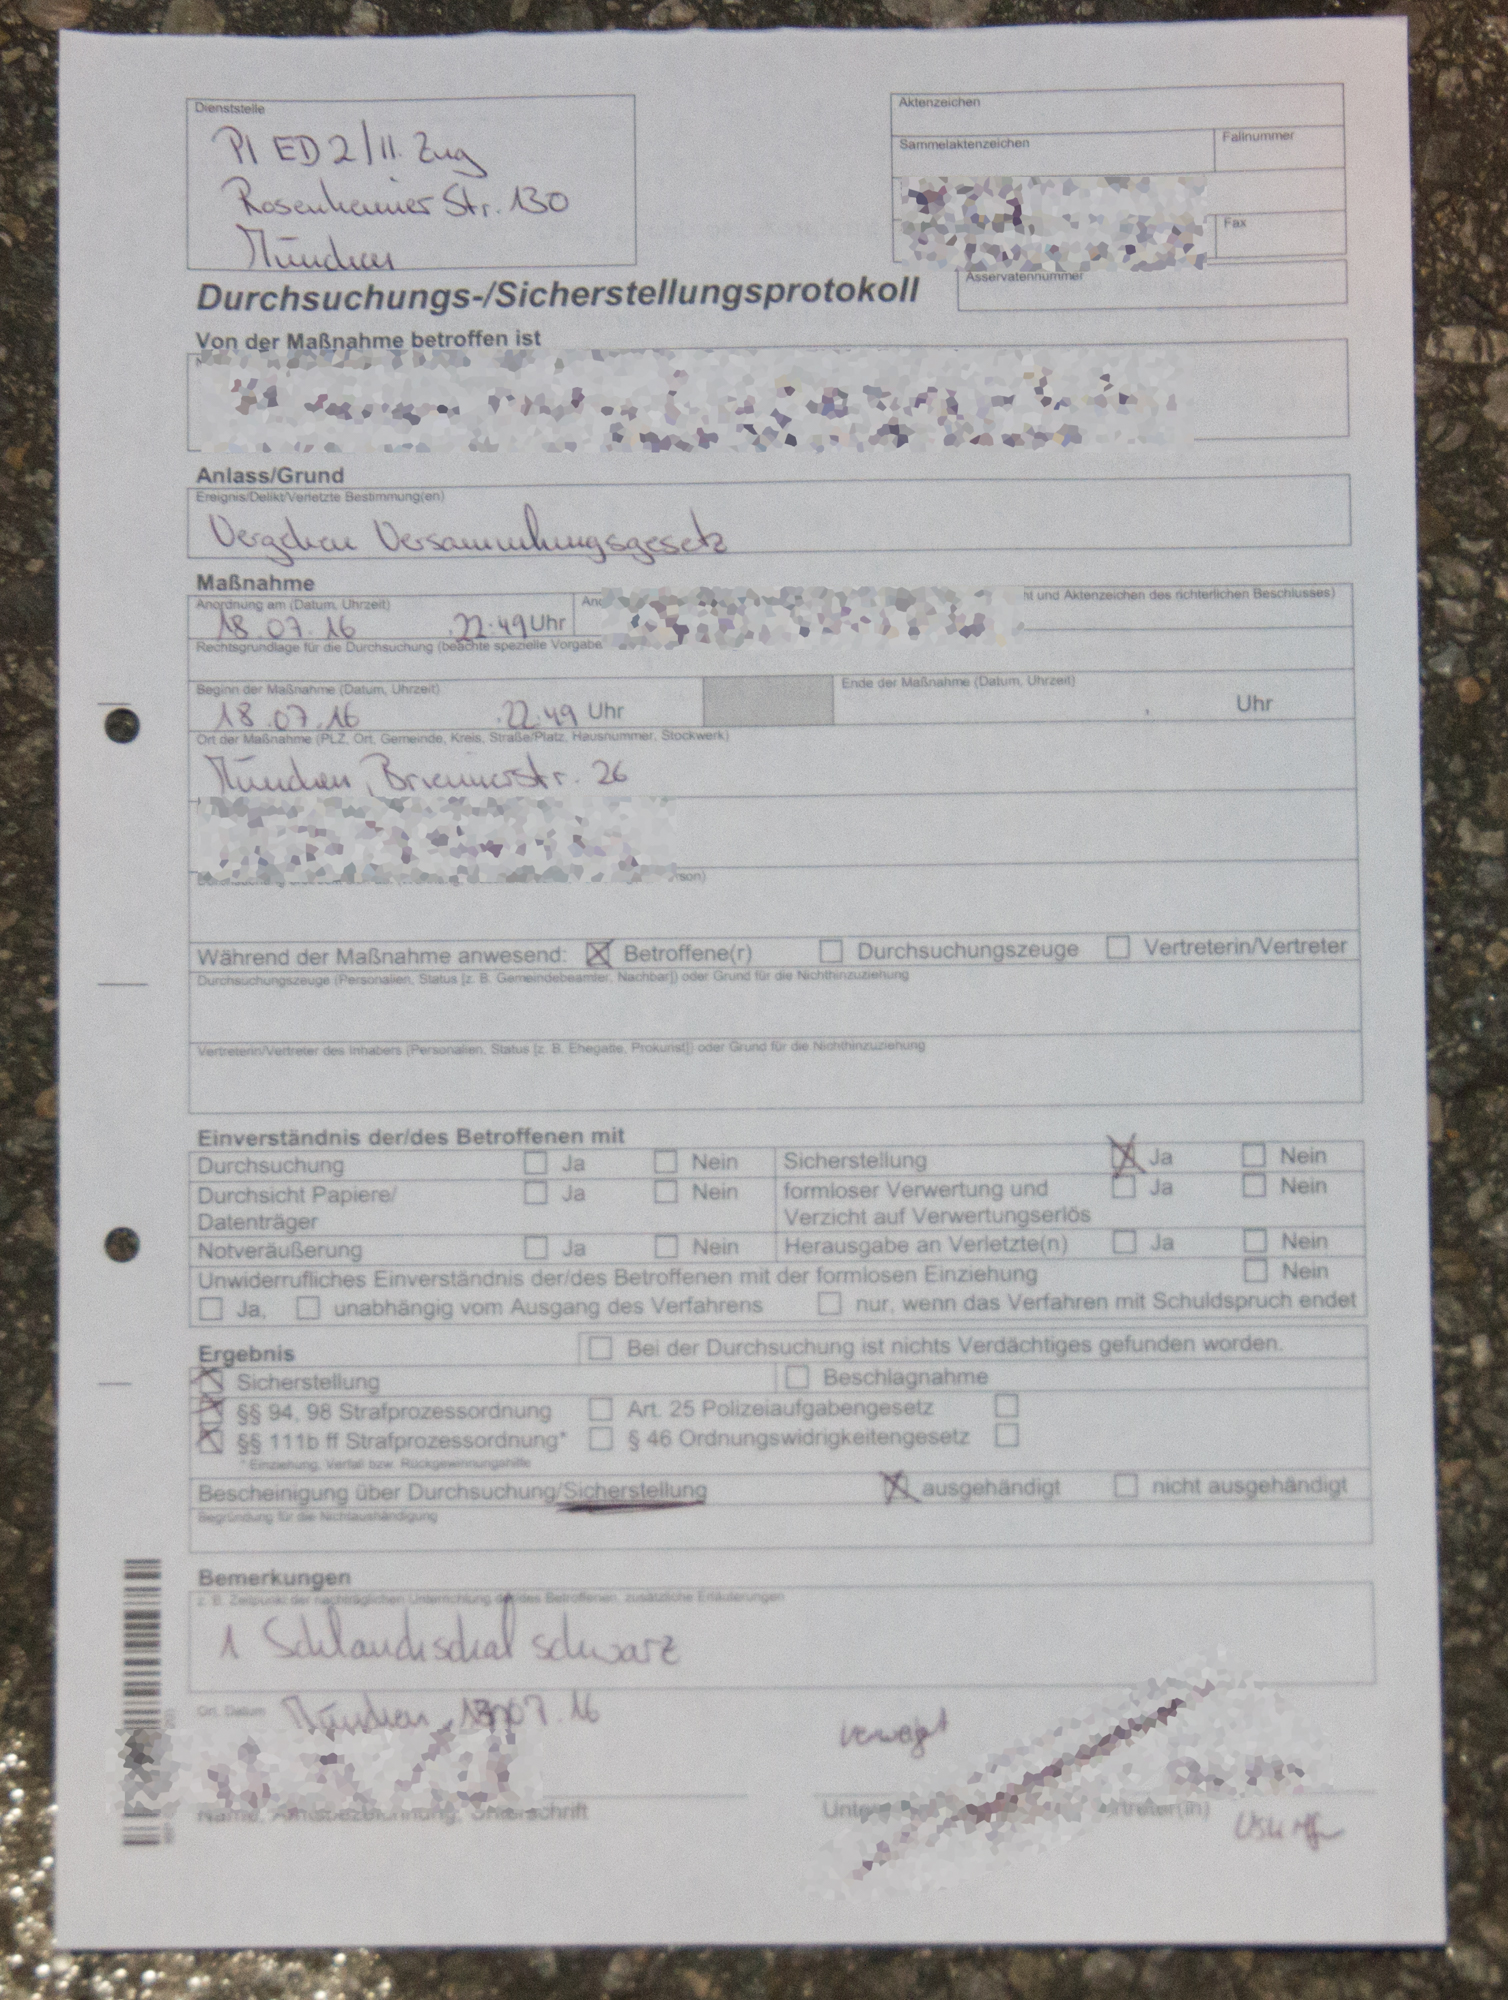 Dienststelle
PI ED 2/II. Zug
Rosenheimer Str. 130
München
Aktenzeichen
Sammelaktenzeichen
Fallnummer
Fax
Asservatennummer
Durchsuchungs-/Sicherstellungsprotokoll
Von der Maßnahme betroffen ist
Anlass/Grund
Ereignis/Delikt/Verletzte Bestimmung(en)
Vergehen Versammlungsgesetz
Maßnahme
Anordnung am (Datum, Uhrzeit)
18.07.16 22:49 Uhr
ht und Aktenzeichen des richterlichen Beschlusses)
Rechtsgrundlage für die Durchsuchung (beachte spezielle Vorgabe
Beginn der Maßnahme (Datum, Uhrzeit)
18.07.16 22:49 Uhr
Ende der Maßnahme (Datum, Uhrzeit)
Uhr
Ort der Maßnahme (PLZ, Ort, Gemeinde, Kreis, Straße/Platz, Hausnummer, Stockwerk)
München, Briennerstr. 26
rson)
Während der Maßnahme anwesend: Betroffene(r) Durchsuchungszeuge Vertreterin/Vertreter
Durchsuchungszeuge (Personalien, Status [z. B. Gemeindebeamter, Nachbar]) oder Grund für die Nichthinzuziehung
Vertreterin/Vertreter des Inhabers (Personalien, Status [z. B. Ehegatte, Prokurist]) oder Grund für die Nichthinzuziehung
Einverständnis der/des Betroffenen mit
Durchsuchung Ja Nein Sicherstellung Ja Nein
Durchsicht Papiere/ Ja Nein formloser Verwertung und Ja Nein
Datenträger Verzicht auf Verwertungserlös
Notveräußerung Ja Nein Herausgabe an Verletzte(n) Ja Nein
Unwiderrufliches Einverständnis der/des Betroffenen mit der formlosen Einziehung Nein
Ja, unabhängig vom Ausgang des Verfahrens nur, wenn das Verfahren mit Schuldspruch endet
Ergebnis Bei der Durchsuchung ist nichts Verdächtiges gefunden worden.
Sicherstellung Beschlagnahme
§§ 94, 98 Strafprozessordnung Art. 25 Polizeiaufgabengesetz
§§ 111b ff Strafprozessordnung* § 46 Ordnungswidrigkeitengesetz
* Einziehung, Verfall bzw. Rückgewinnungshilfe
Bescheinigung über Durchsuchung/Sicherstellung ausgehändigt nicht ausgehändigt
Begründung für die Nichtaushändigung
Bemerkungen
z. B. Zeitpunkt der nachträglichen Unterrichtung der/des Betroffenen, zusätzliche Erläuterungen
1 Schlauchschal schwarz
Ort, Datum München, 07.16
verweigert
Name, Amtsbezeichnung, Unterschrift